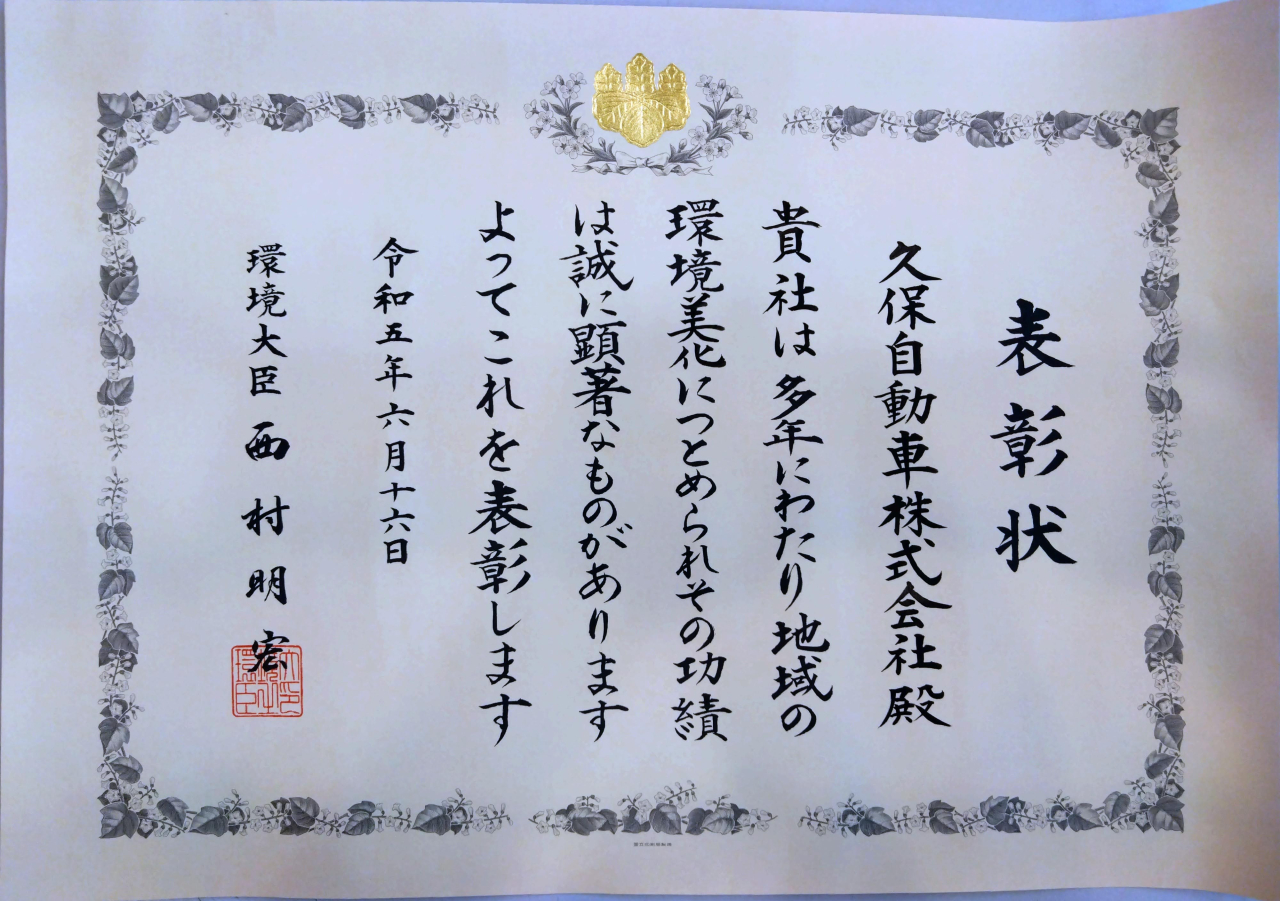 表彰状
久保自動車株式会社殿
貴社は多年にわたり地域の
環境美化につとめられその功績
は誠に顕著なものがあります
よってこれを表彰します
令和五年六月十六日
環境大臣 西村明宏